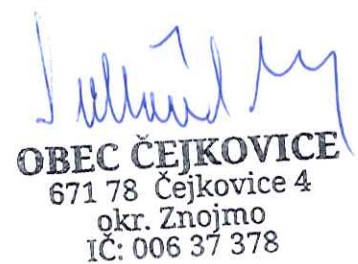 OBEC ČEJKOVICE
671 78 Čejkovice 4
okr. Znojmo
IČ: 006 37 378